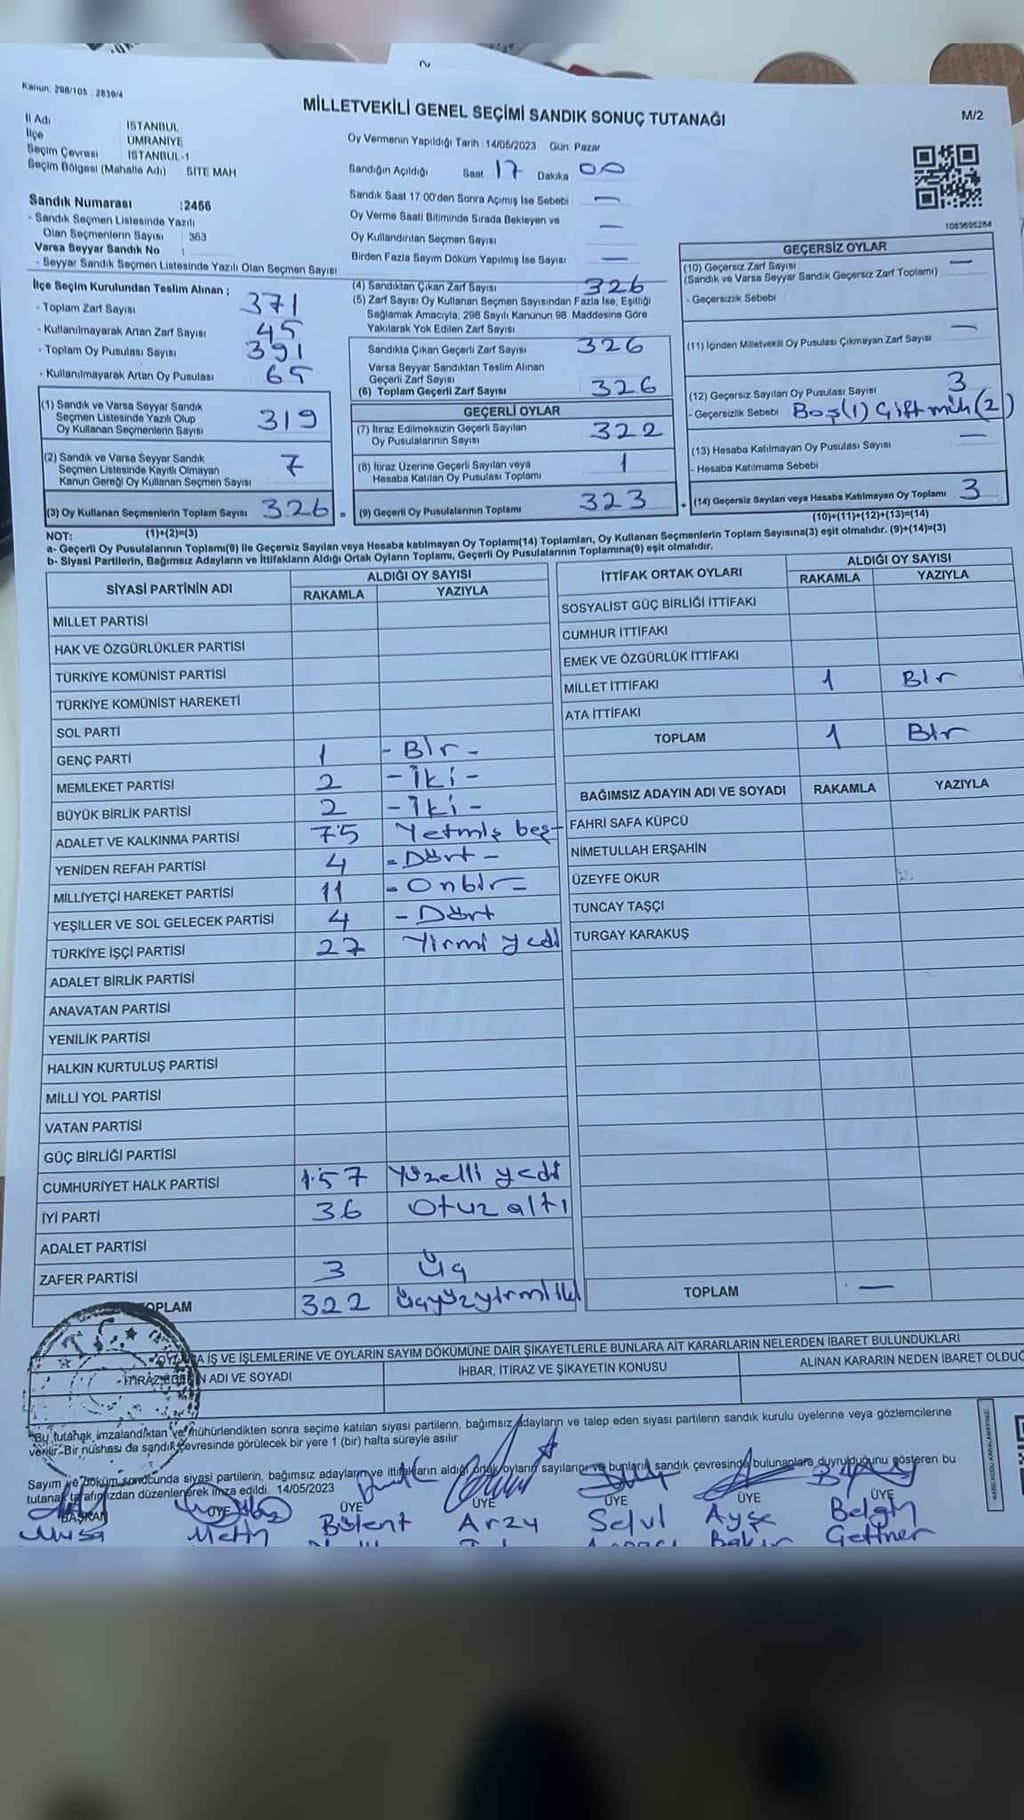 Kanun: 298/105 , 2839/4
MİLLETVEKİLİ GENEL SEÇİMİ SANDIK SONUÇ TUTANAĞI
M/2
İl Adı İSTANBUL
İlçe ÜMRANİYE
Seçim Çevresi İSTANBUL-1
Seçim Bölgesi (Mahalle Adı) SİTE MAH
Sandık Numarası :2456
- Sandık Seçmen Listesinde Yazılı
Olan Seçmenlerin Sayısı : 363
Varsa Seyyar Sandık No :
- Seyyar Sandık Seçmen Listesinde Yazılı Olan Seçmen Sayısı
Oy Vermenin Yapıldığı Tarih :14/05/2023 Gün: Pazar
Sandığın Açıldığı Saat 17 Dakika 00
Sandık Saat 17:00'den Sonra Açımış İse Sebebi —
Oy Verme Saati Bitiminde Sırada Bekleyen ve
Oy Kullandırılan Seçmen Sayısı —
Birden Fazla Sayım Döküm Yapılmış İse Sayısı —
1083695284
İlçe Seçim Kurulundan Teslim Alınan ;
- Toplam Zarf Sayısı 371
- Kullanılmayarak Artan Zarf Sayısı 45
- Toplam Oy Pusulası Sayısı 391
- Kullanılmayarak Artan Oy Pusulası 65
(1) Sandık ve Varsa Seyyar Sandık
Seçmen Listesinde Yazılı Olup
Oy Kullanan Seçmenlerin Sayısı 319
(2) Sandık ve Varsa Seyyar Sandık
Seçmen Listesinde Kayıtlı Olmayan
Kanun Gereği Oy Kullanan Seçmen Sayısı 7
(3) Oy Kullanan Seçmenlerin Toplam Sayısı 326 =
(1)+(2)=(3)
(4) Sandıktan Çıkan Zarf Sayısı 326
(5) Zarf Sayısı Oy Kullanan Seçmen Sayısından Fazla İse, Eşitliği
Sağlamak Amacıyla, 298 Sayılı Kanunun 98. Maddesine Göre
Yakılarak Yok Edilen Zarf Sayısı
Sandıkta Çıkan Geçerli Zarf Sayısı 326
Varsa Seyyar Sandıktan Teslim Alınan
Geçerli Zarf Sayısı
(6) Toplam Geçerli Zarf Sayısı 326
GEÇERLİ OYLAR
(7) İtiraz Edilmeksizin Geçerli Sayılan
Oy Pusulalarının Sayısı 322
(8) İtiraz Üzerine Geçerli Sayılan veya
Hesaba Katılan Oy Pusulası Toplamı 1
(9) Geçerli Oy Pusulalarının Toplamı 323 +
GEÇERSİZ OYLAR
(10) Geçersiz Zarf Sayısı —
(Sandık ve Varsa Seyyar Sandık Geçersiz Zarf Toplamı)
- Geçersizlik Sebebi
(11) İçinden Milletvekili Oy Pusulası Çıkmayan Zarf Sayısı —
(12) Geçersiz Sayılan Oy Pusulası Sayısı 3
- Geçersizlik Sebebi Boş(1) Çift müh(2)
(13) Hesaba Katılmayan Oy Pusulası Sayısı —
- Hesaba Katılmama Sebebi
(14) Geçersiz Sayılan veya Hesaba Katılmayan Oy Toplamı 3
(10)+(11)+(12)+(13)=(14)
NOT:
a- Geçerli Oy Pusulalarının Toplamı(9) ile Geçersiz Sayılan veya Hesaba katılmayan Oy Toplamı(14) Toplamları, Oy Kullanan Seçmenlerin Toplam Sayısına(3) eşit olmalıdır. (9)+(14)=(3)
b- Siyasi Partilerin, Bağımsız Adayların ve İttifakların Aldığı Ortak Oyların Toplamı, Geçerli Oy Pusulalarının Toplamına(9) eşit olmalıdır.
SİYASİ PARTİNİN ADI ALDIĞI OY SAYISI
RAKAMLA YAZIYLA
MİLLET PARTİSİ
HAK VE ÖZGÜRLÜKLER PARTİSİ
TÜRKİYE KOMÜNİST PARTİSİ
TÜRKİYE KOMÜNİST HAREKETİ
SOL PARTİ
GENÇ PARTİ 1 - Bir -
MEMLEKET PARTİSİ 2 - İki -
BÜYÜK BİRLİK PARTİSİ 2 - İki -
ADALET VE KALKINMA PARTİSİ 75 Yetmiş beş
YENİDEN REFAH PARTİSİ 4 - Dört -
MİLLİYETÇİ HAREKET PARTİSİ 11 - Onbir -
YEŞİLLER VE SOL GELECEK PARTİSİ 4 - Dört
TÜRKİYE İŞÇİ PARTİSİ 27 Yirmi yedi
ADALET BİRLİK PARTİSİ
ANAVATAN PARTİSİ
YENİLİK PARTİSİ
HALKIN KURTULUŞ PARTİSİ
MİLLİ YOL PARTİSİ
VATAN PARTİSİ
GÜÇ BİRLİĞİ PARTİSİ
CUMHURİYET HALK PARTİSİ 157 Yüzelli yedi
İYİ PARTİ 36 Otuz altı
ADALET PARTİSİ
ZAFER PARTİSİ 3 Üç
TOPLAM 322 Üçyüzyirmi iki
İTTİFAK ORTAK OYLARI ALDIĞI OY SAYISI
RAKAMLA YAZIYLA
SOSYALİST GÜÇ BİRLİĞİ İTTİFAKI
CUMHUR İTTİFAKI
EMEK VE ÖZGÜRLÜK İTTİFAKI
MİLLET İTTİFAKI 1 Bir
ATA İTTİFAKI
TOPLAM 1 Bir
BAĞIMSIZ ADAYIN ADI VE SOYADI RAKAMLA YAZIYLA
FAHRİ SAFA KÜPCÜ
NİMETULLAH ERŞAHİN
ÜZEYFE OKUR
TUNCAY TAŞÇI
TURGAY KARAKUŞ
TOPLAM —
T.C.
İŞ VE İŞLEMLERİNE VE OYLARIN SAYIM DÖKÜMÜNE DAİR ŞİKAYETLERLE BUNLARA AİT KARARLARIN NELERDEN İBARET BULUNDUKLARI
ADI VE SOYADI İHBAR, İTİRAZ VE ŞİKAYETİN KONUSU ALINAN KARARIN NEDEN İBARET OLDUĞ
Bu tutanak imzalandıktan ve mühürlendikten sonra seçime katılan siyasi partilerin, bağımsız adayların ve talep eden siyasi partilerin sandık kurulu üyelerine veya gözlemcilerine
verilir. Bir nüshası da sandık çevresinde görülecek bir yere 1 (bir) hafta süreyle asılır.
Sayım ve döküm sonucunda siyasi partilerin, bağımsız adayların ve ittifakların aldığı ortak oyların sayılarını ve bunların sandık çevresinde bulunanlara duyrulduğunu gösteren bu
tutanak tarafımızdan düzenlenerek imza edildi. 14/05/2023
BAŞKAN ÜYE ÜYE ÜYE ÜYE ÜYE ÜYE
Musa Metin Bülent Arzu Selvi Ayşe Belgin
Gettner